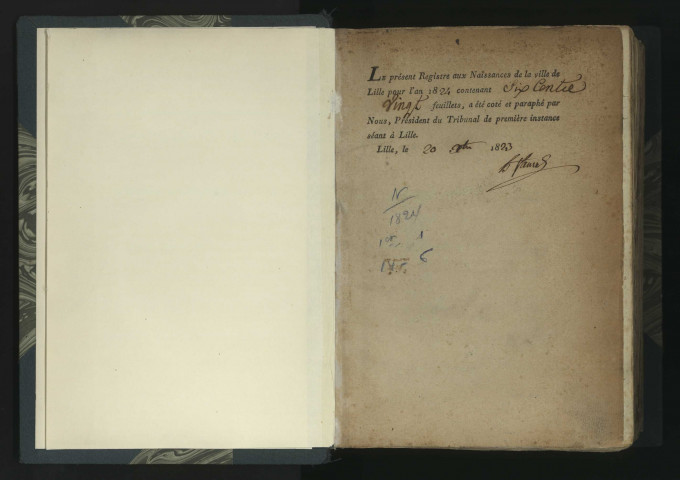 Le présent Registre aux Naissances de la ville de
Lille pour l'an 1824 contenant Six Cent
Vingt feuillets, a été coté et paraphé par
Nous, Président du Tribunal de première instance
séant à Lille.
Lille, le 20 1823
N
1824
1